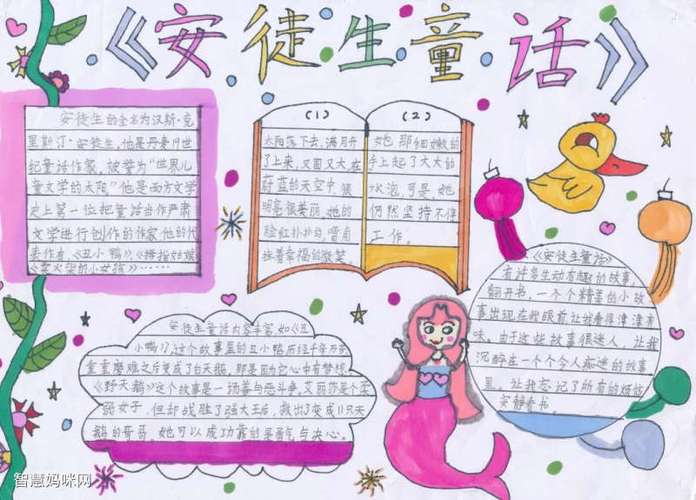 《安徒生童话》
安徒生的全名为汉斯·克
里斯汀·安徒生,他是丹麦19世
纪童话作家,被誉为"世界儿
童文学的太阳"他是西方文学
史上第一位把童话当作严肃
文学进行创作的作家,他的代
表作有《丑小鸭》《拇指姑娘》
《卖火柴的小女孩》……
(1)
太阳落下去,满月升
了上来,又圆又大,在
蔚蓝的天空中,很
明亮很美丽,她的
脸红扑扑的,嘴角
挂着幸福的微笑
(2)
她那细嫩的
手上起了大大的
水泡,可是她
仍然坚持不停
工作。
《安徒生童话》
有许多生动有趣的故事,
翻开书,一个个精美的小故
事出现在我眼前,让我看得津津有
味。由于这些故事很迷人,让我
沉醉在一个个令人痴迷的故事
里,让我忘记了所有的烦恼
安静看书。
安徒生童话内容丰富,如《丑
小鸭》,这个故事里的丑小鸭历经千辛万苦
重重磨难之后变成了白天鹅,那是因为它心中有梦想
《野天鹅》这个故事是一场善与恶斗争,艾丽莎是个柔
弱女子,但却战胜了强大王后,救出了变成11只天
鹅的哥哥。她可以成功靠的是勇气与决心。
智慧妈咪网